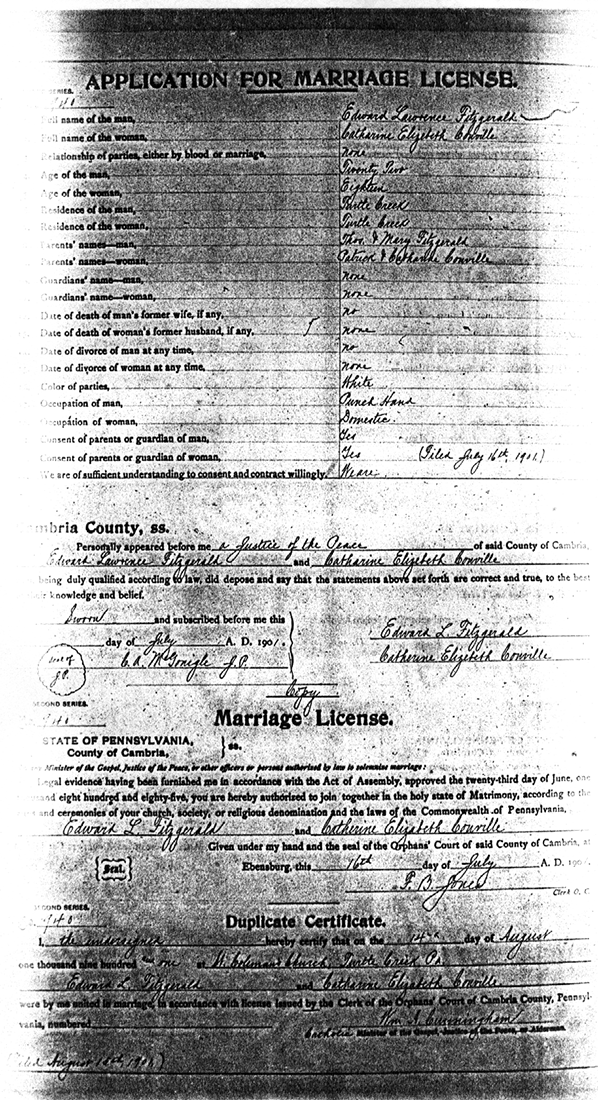 APPLICATION FOR MARRIAGE LICENSE.
SERIES.
Full name of the man, Edward Lawrence Fitzgerald
Full name of the woman, Catharine Elizebeth Conville
Relationship of parties, either by blood or marriage, none
Age of the man, Twenty Two
Age of the woman, Eighteen
Residence of the man, Turtle Creek
Residence of the woman, Turtle Creek
Parents' names—man, Thos. & Mary Fitzgerald
Parents' names—woman, Patrick & Catharine Conville
Guardians' name—man, none
Guardians' name—woman, none
Date of death of man's former wife, if any, no
Date of death of woman's former husband, if any, none
Date of divorce of man at any time, no
Date of divorce of woman at any time, none
Color of parties, White
Occupation of man, Punch Hand
Occupation of woman, Domestic.
Consent of parents or guardian of man, Yes
Consent of parents or guardian of woman, Yes (Filed July 16th, 1901.)
We are of sufficient understanding to consent and contract willingly. We are
mbria County, ss.
Personally appeared before me a Justice of the Peace of said County of Cambria,
Edward Lawrence Fitzgerald and Catharine Elizebeth Conville
being duly qualified according to law, did depose and say that the statements above set forth are correct and true, to the best
knowledge and belief.
Sworn and subscribed before me this
day of July A. D. 1901. Edward L. Fitzgerald
Seal of J.P. C. A. McGonigle J.P. Catherine Elizebeth Conville
Copy
SECOND SERIES.
Marriage License.
STATE OF PENNSYLVANIA,
County of Cambria, } ss.
Minister of the Gospel, Justices of the Peace, or other officers or persons authorized by law to solemnize marriage:
Legal evidence having been furnished me in accordance with the Act of Assembly, approved the twenty-third day of June, one
and eight hundred and eighty-five, you are hereby authorized to join together in the holy state of Matrimony, according to the
and ceremonies of your church, society, or religious denomination and the laws of the Commonwealth of Pennsylvania,
Edward L. Fitzgerald and Catherine Elizebeth Conville
Given under my hand and the seal of the Orphans' Court of said County of Cambria, at
Seal. Ebensburg, this 16th day of July A. D. 190
Jones
Clerk O. C.
SECOND SERIES.
Duplicate Certificate.
I, the undersigned hereby certify that on the 14th day of August
one thousand nine hundred and one at St. Colman's Church Turtle Creek Pa.
Edward L. Fitzgerald and Catharine Elizabeth Conville
were by me united in marriage, in accordance with license issued by the Clerk of the Orphans' Court of Cambria County, Pennsyl-
vania, numbered Wm. Cunningham
Catholic Minister of the Gospel, Justice of the Peace, or Alderman.
August 1901.)